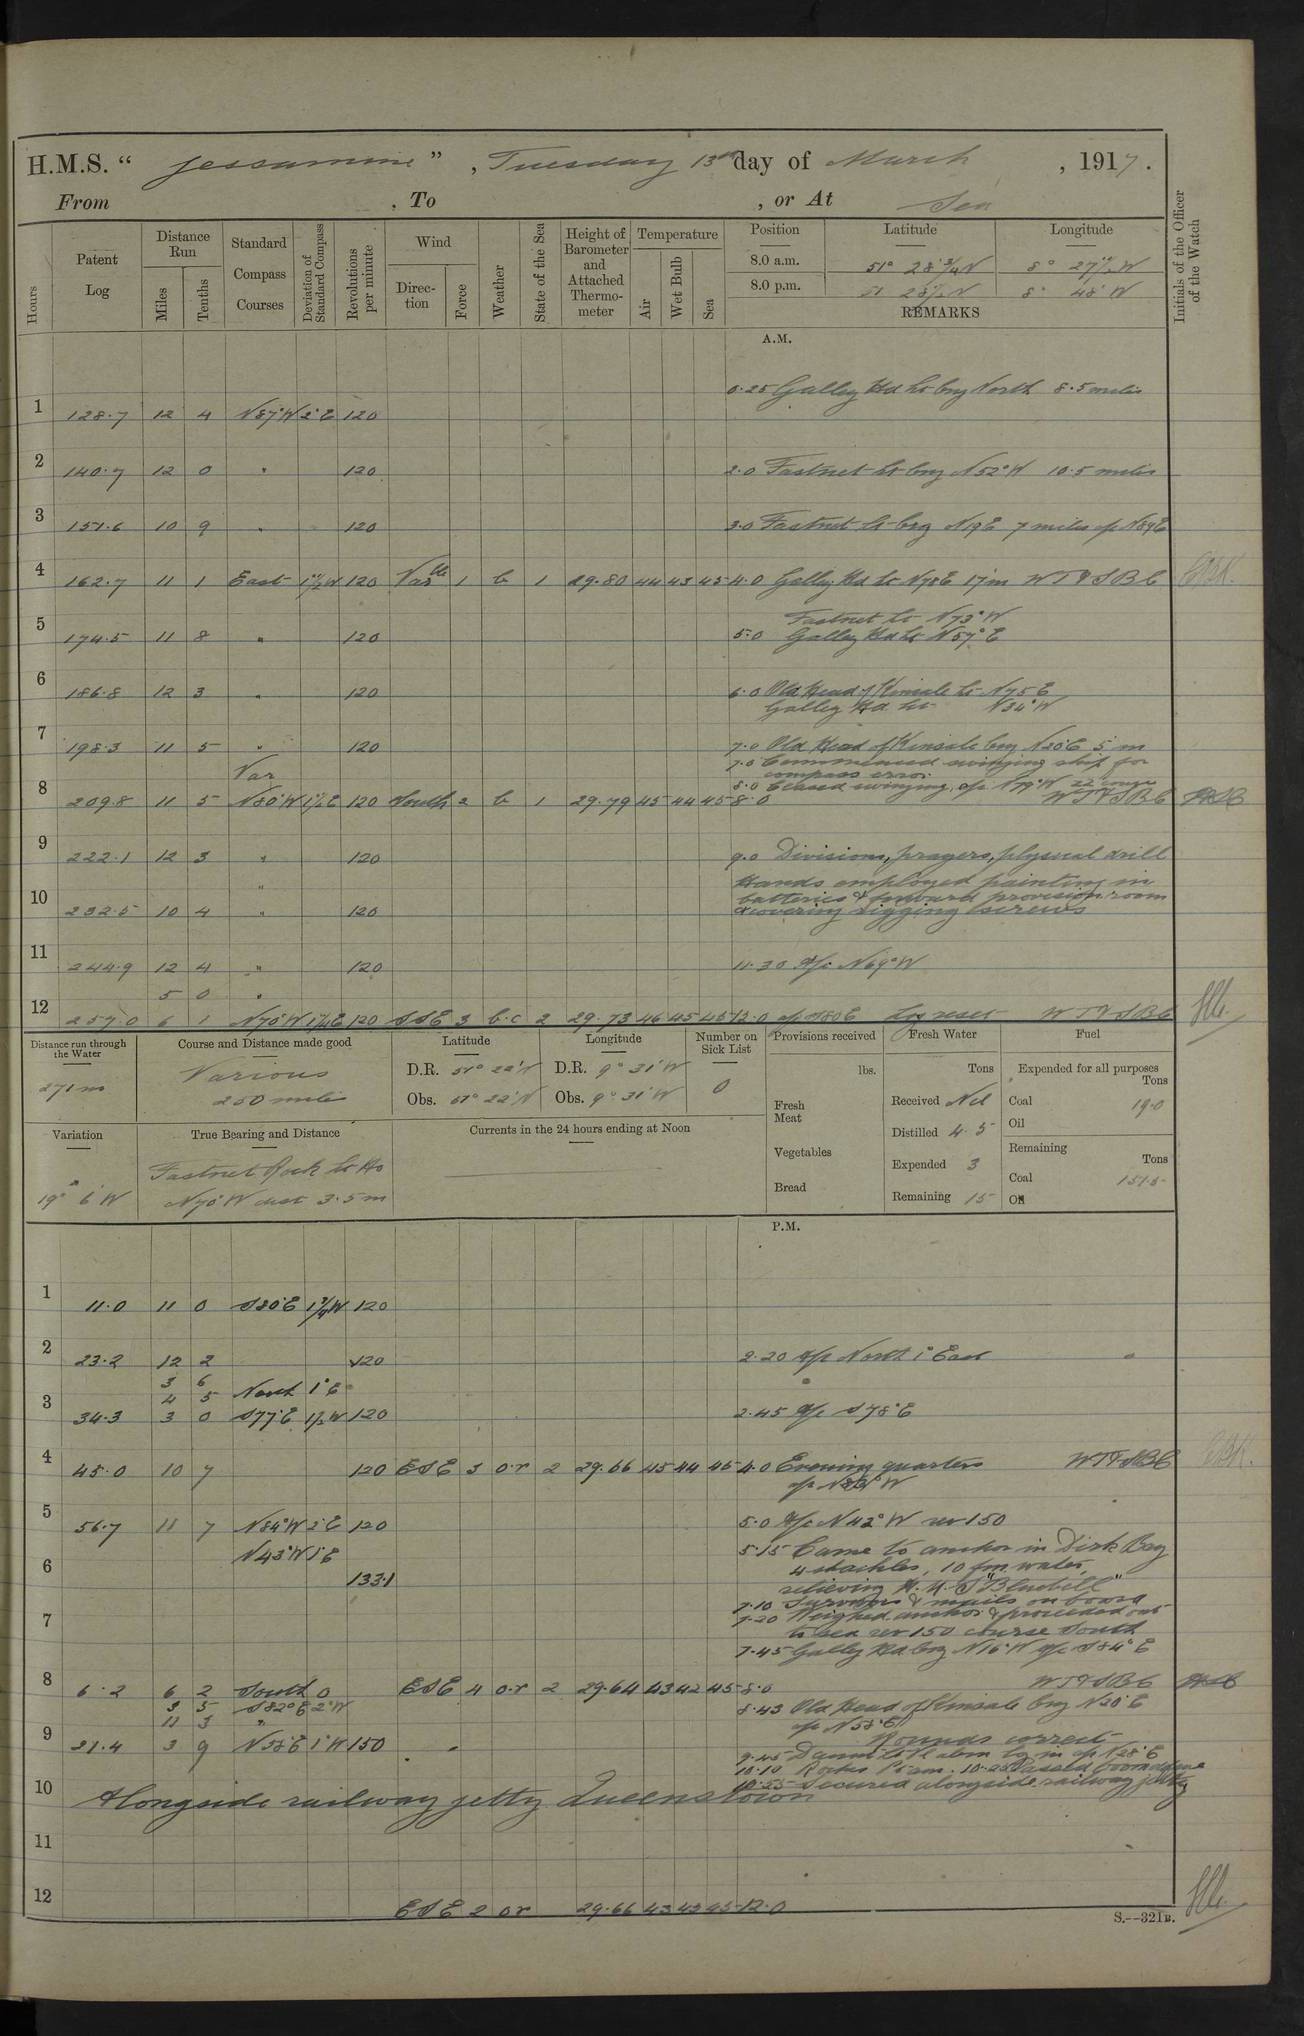 H.M.S. “ Jessamine ” , Tuesday 13th day of March , 1917 .
From , To , or At Sea
Hours
Patent Log
Distance Run
Miles
Tenths
Standard Compass Courses
Deviation of Standard Compass
Revolutions per minute
Wind
Direction
Force
Weather
State of the Sea
Height of Barometer and Attached Thermometer
Temperature
Air
Wet Bulb
Sea
Position Latitude Longitude
8.0 a.m. 51° 28 3/4 N 8° 27 W
8.0 p.m. 51 28 N 8° 48' W
REMARKS
Initials of the Officer of the Watch
A.M.
0.25 Galley Hd Lt brg North 8.5 miles
1 128.7 12 4 N87°W 2°E 120
2 140.7 12 0 " 120 2.0 Fastnet Lt brg N52°W 10.5 miles
3 151.6 10 9 " 120 3.0 Fastnet Lt brg N19E 7 miles a/c N89E
4 162.7 11 1 East 1 1/2 W 120 Vable 1 b 1 29.80 44 43 45 4.0 Galley Hd Lt N78E 17m WT&SBC
Fastnet Lt N73°W
5 174.5 11 8 " 120 5.0 Galley Hd Lt N57°E
6 186.8 12 3 " 120 6.0 Old Head of Kinsale Lt N75E
Galley Hd Lt N34°W
7 198.3 11 5 " 120 7.0 Old Head of Kinsale brg N20°E 5 m
7.0 Commenced swinging ship for
compass error.
Var
8.0 Ceased swinging, a/c N79°W
8 209.8 11 5 N80°W 1 1/2 E 120 South 2 b 1 29.79 45 44 45 8.0 WT&SBC
9 222.1 12 3 " 120 9.0 Divisions, prayers, physical drill
Hands employed painting in
batteries & forward provision room
10 232.5 10 4 " 120 & covering rigging screws
11 244.9 12 4 " 120 11.30 A/c N69°W
5 0 "
12 257.0 6 1 N70°W 1 1/4 E 120 SSE 3 b.c 2 29.73 46 45 45 12.0 a/c S80E Log reset WT&SBC
Distance run through the Water
271m
Course and Distance made good
Various
250 miles
Latitude
D.R. 51° 22'N
Obs. 51° 22'N
Longitude
D.R. 9° 31'W
Obs. 9° 31'W
Number on Sick List
0
Variation
19° 6'W
True Bearing and Distance
Fastnet Rock Lt Ho
N70°W dist 3.5m
Currents in the 24 hours ending at Noon
Provisions received
lbs.
Fresh Meat
Vegetables
Bread
Fresh Water
Tons
Received Nil
Distilled 4.5
Expended 3
Remaining 15
Fuel
Expended for all purposes
Tons
Coal 19.0
Oil
Remaining
Tons
Coal 151.5
Oil
P.M.
1 11.0 11 0 S80°E 1 3/4 W 120
2 23.2 12 2 120 2.20 A/c North 1° East
3 6
4 5 North 1°E
3 34.3 3 0 S77°E 1 1/2 W 120 2.45 A/c S78°E
4 45.0 10 7 120 ESE 3 o.r 2 29.66 45 44 45 4.0 Evening quarters WT&SBC
5 56.7 11 7 N84°W 2°E 120 5.0 A/c N42°W rev 150
N43°W 1°E
5.15 Came to anchor in Dirk Bay
4 shackles, 10 fm water,
6 133.1 relieving H.M.S "Bluebell"
7.10 Survivors & mails on board
7 7.20 Weighed anchor & proceeded out
to sea rev 150 course South
7.45 Galley Hd brg N16°W a/c S84°E
8 6.2 6 2 South 0 ESE 4 o.r 2 29.64 43 42 45 8.0 WT&SBC
3 5 S82°E 2°W
11 3 "
8.43 Old Head of Kinsale brg N20°E
a/c N58°E
Rounds correct
9 21.4 3 9 N58°E 1°W 150
9.45 Daunt Lt V abm a/c N28°E
10.10 Roches Pt abm. 10.25 Passed boom defence
10.55 Secured alongside railway jetty
10 Alongside railway jetty Queenstown
11
12 ESE 2 or 29.66 43 43 45 12.0
S.—321B.